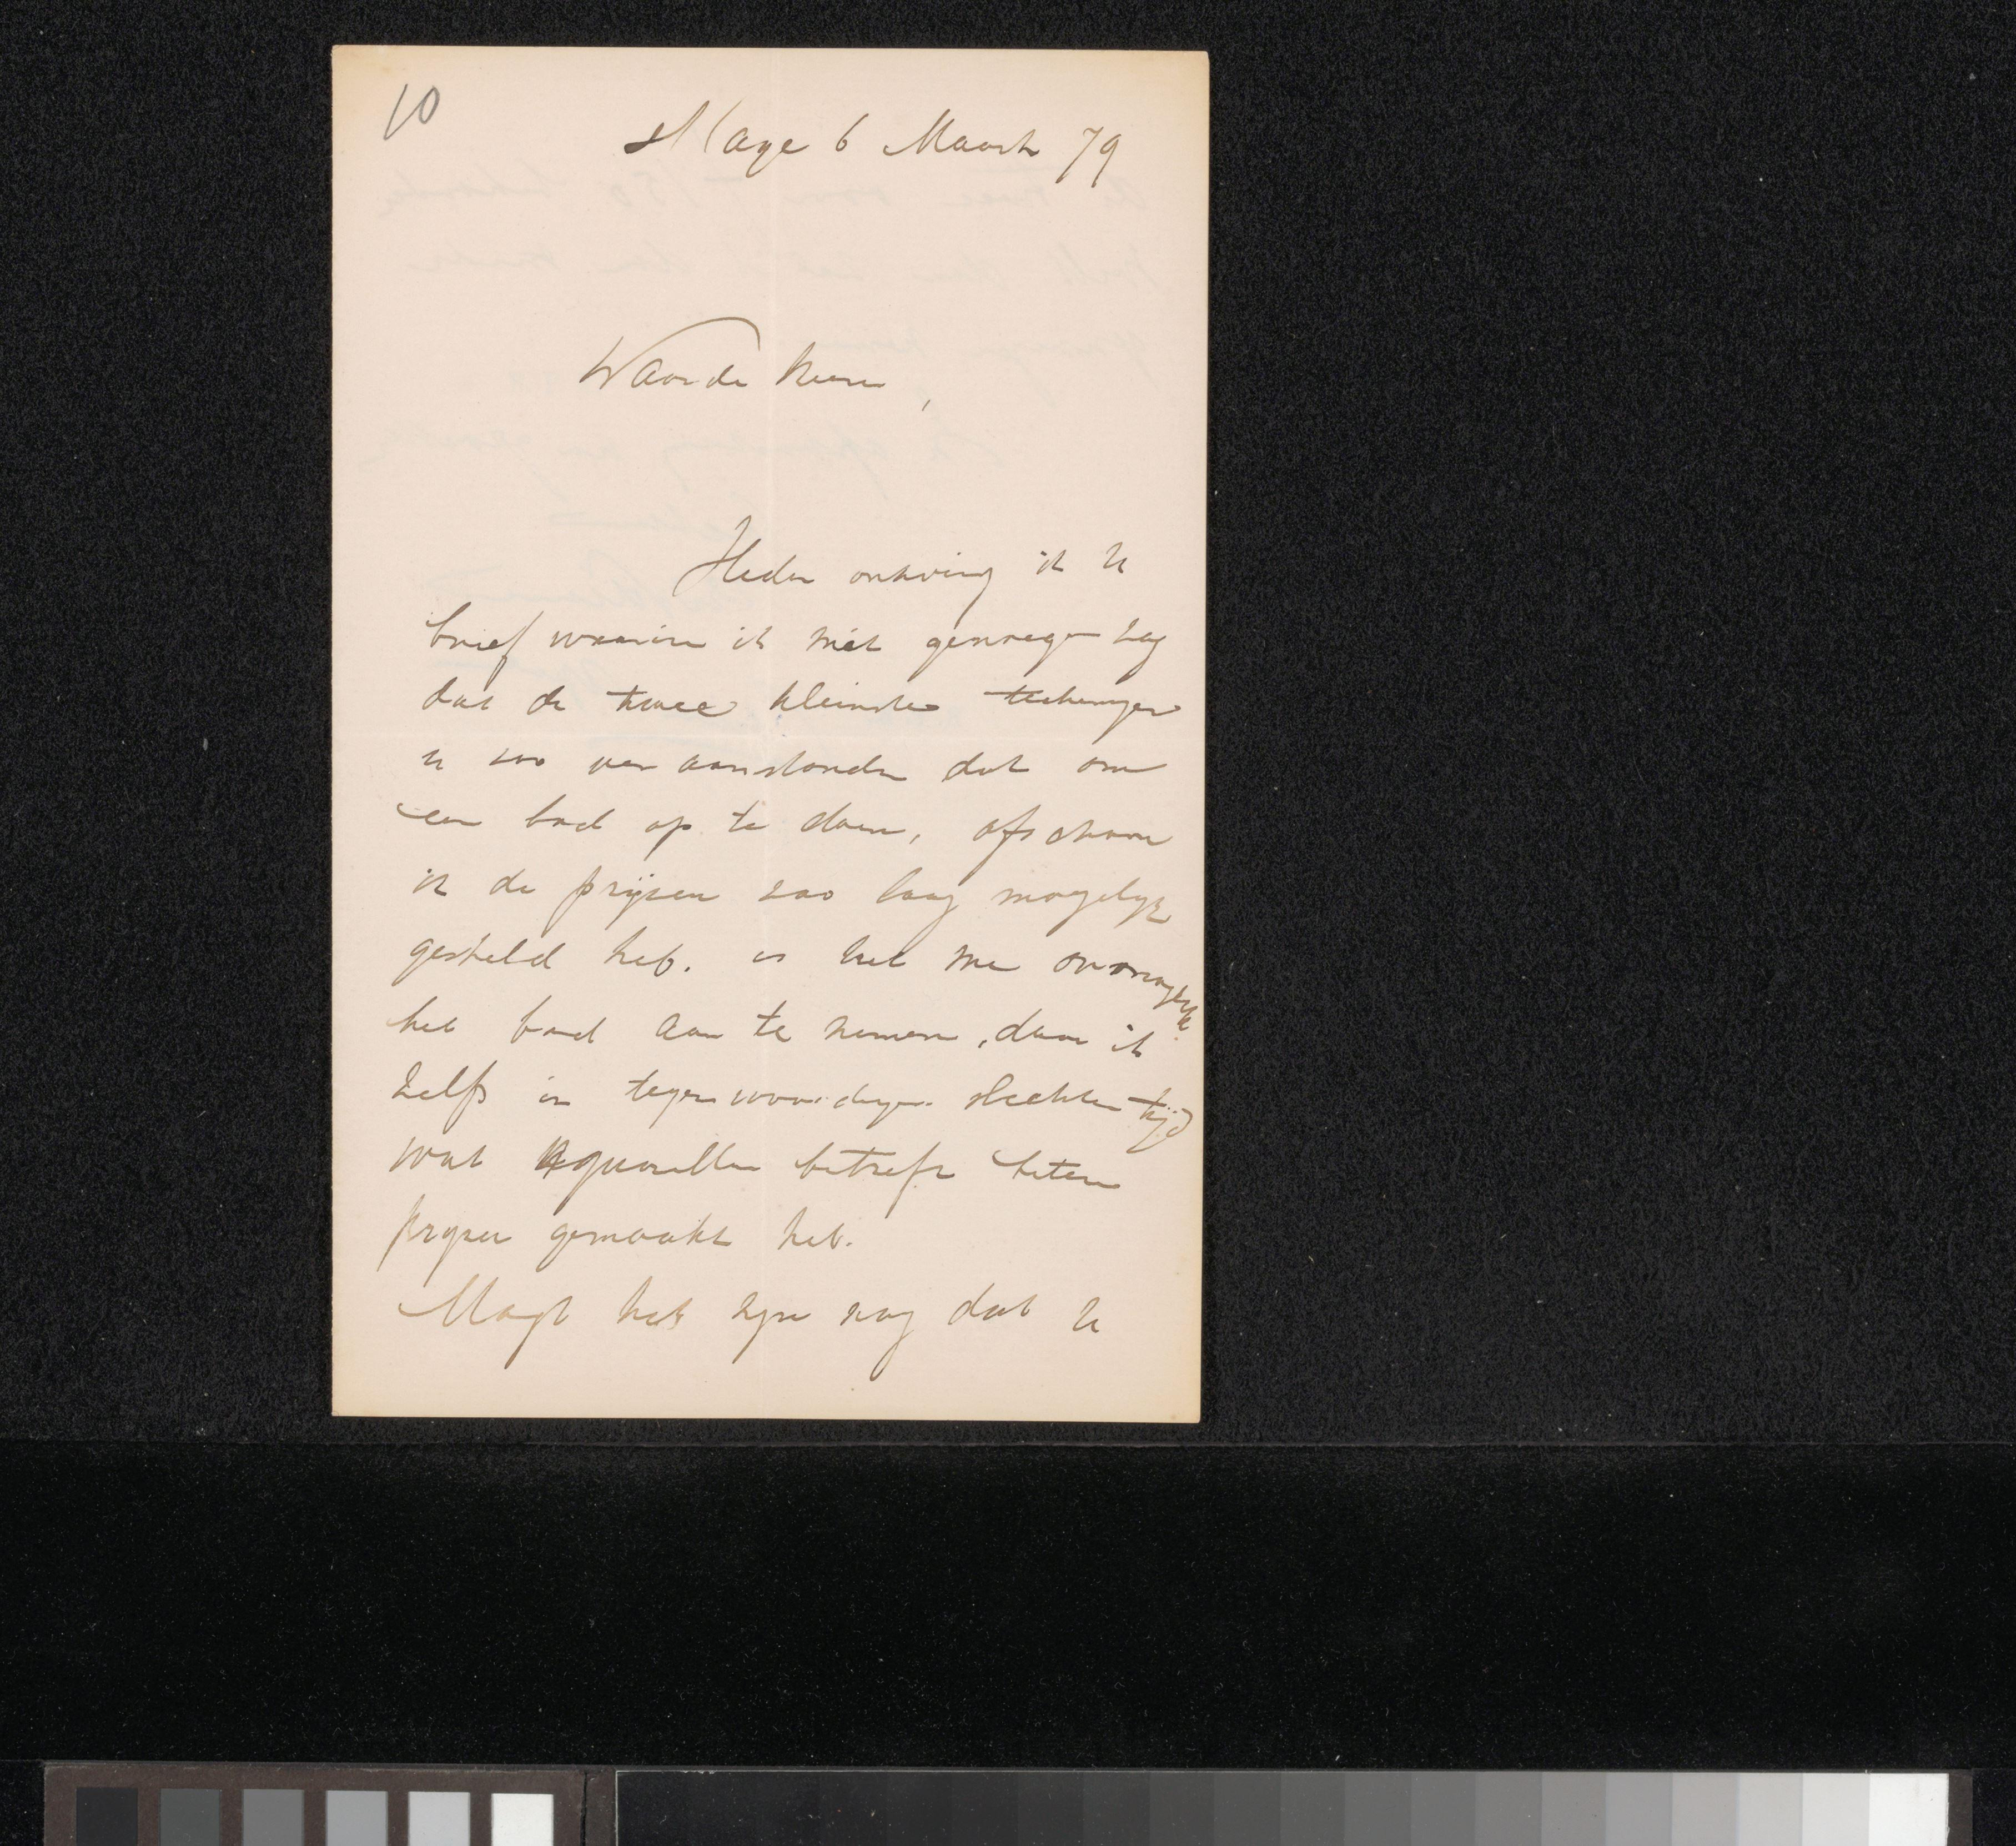 10
Hage 6 Maart 79
Waarde Heer,
Heden ontving ik U
brief waarin ik met genoegen zag
dat de twee kleinste teekeningen
u zoo aanstonden dat om
een bod op te doen, ofschoon
ik de prijzen zoo laag mogelijk
gesteld heb. is het me onmogelijk
het bod aan te nemen, daar ik
zelfs in tegenwoordigen slechten tijd
wat aquarellen betreft betere
prijzen gemaakt heb.
Magt het zijn nog dat U